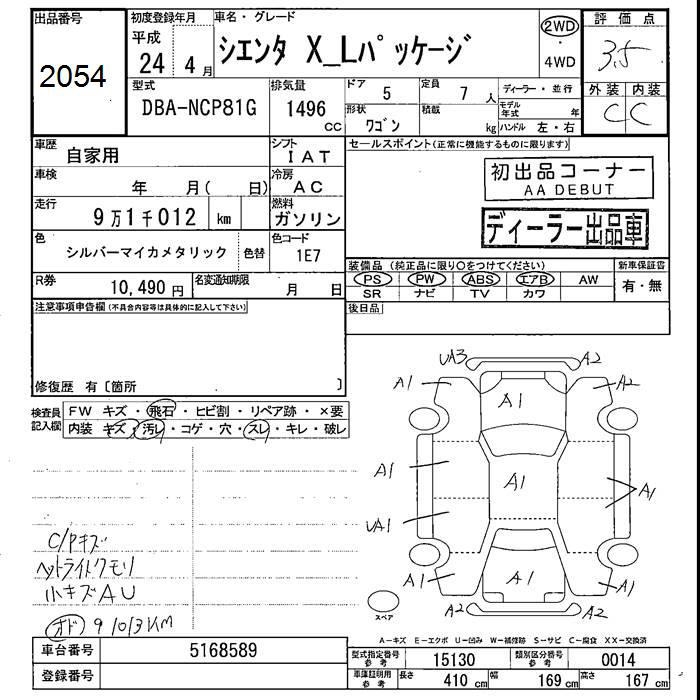 出品番号
2054
初度登録年月
平成
24 4月
車名・グレード
シエンタ X_Lパッケージ
2WD
・
4WD
評価点
3.5
外装 内装
C C
型式
DBA-NCP81G
排気量
1496
CC
ドア 5
定員 7 人
形状 ワゴン
積載 kg
ディーラー・並行
モデル年式 年
ハンドル 左・右
車歴 自家用
シフト IAT
車検 年 月( 日)
冷房 AC
走行 9万1千012 km
燃料 ガソリン
色 シルバーマイカメタリック 色替
色コード 1E7
R券 10,490 円
名変通知期限 月 日
セールスポイント(正常に機能するものに限ります)
初出品コーナー
AA DEBUT
ディーラー出品車
装備品 (純正品に限り○をつけてください)
新車保証書
PS PW ABS エアB AW
SR ナビ TV カワ
有・無
後日品
注意事項申告欄(不具合内容等は具体的に記入して下さい)
修復歴 有〔箇所 〕
検査員記入欄
FW キズ・飛石・ヒビ割・リペア跡・×要
内装 キズ・汚レ・コゲ・穴・スレ・キレ・破レ
C/Pキズ
ヘットライトクモリ
小キズAU
オド 91013KM
UA3 A2
A1 A2
A1
A1 A1 A1
UA1
A1 A1 A1
A2 A2
スペア
A-キズ E-エクボ U-凹み W-補修跡 S-サビ C-腐食 XX-交換済
車台番号 5168589
登録番号
型式指定番号 参考 15130
類別区分番号 参考 0014
車庫証明用 参考 長さ 410 cm 幅 169 cm 高さ 167 cm